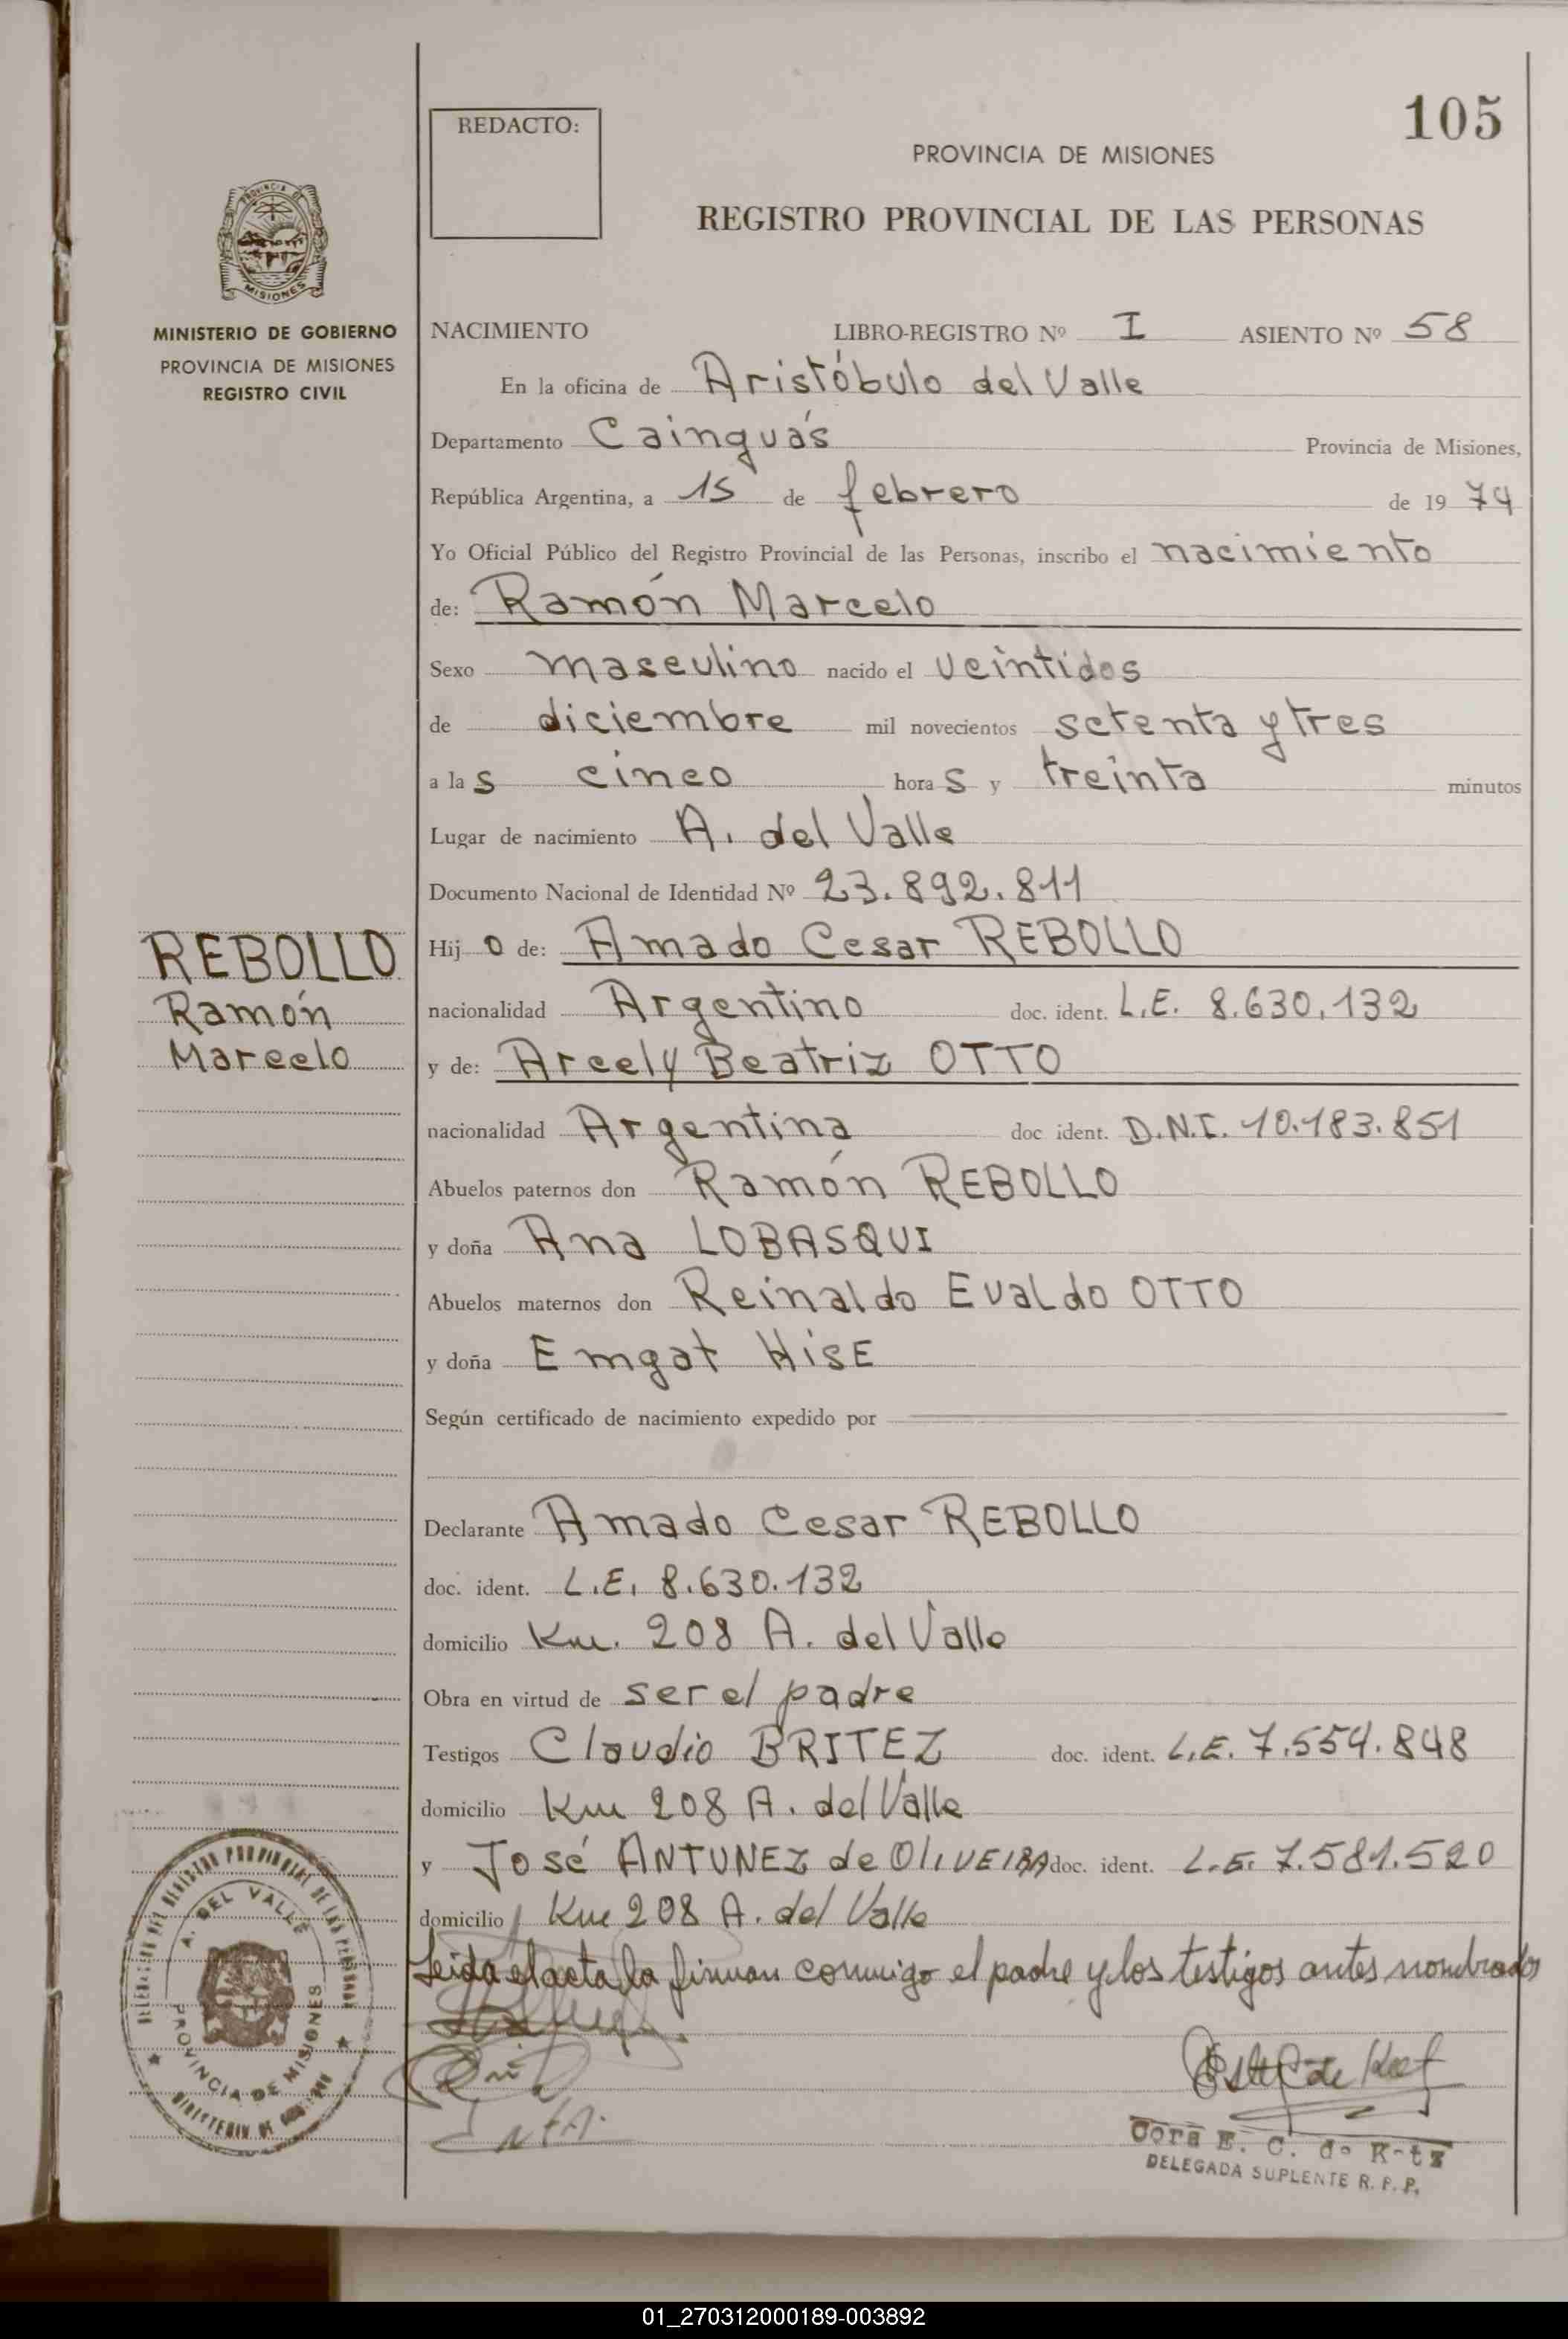 105
REDACTO:
PROVINCIA DE MISIONES
REGISTRO PROVINCIAL DE LAS PERSONAS
MISIONES
MINISTERIO DE GOBIERNO
PROVINCIA DE MISIONES
REGISTRO CIVIL
NACIMIENTO LIBRO-REGISTRO Nº I ASIENTO Nº 58
En la oficina de Aristóbulo del Valle
Departamento Cainguás Provincia de Misiones,
República Argentina, a 15 de febrero de 19 74
Yo Oficial Público del Registro Provincial de las Personas, inscribo el nacimiento
de: Ramón Marcelo
Sexo masculino nacido el veintidos
de diciembre mil novecientos setenta y tres
a las cinco horas y treinta minutos
Lugar de nacimiento A. del Valle
Documento Nacional de Identidad Nº 23.892.811
REBOLLO
Ramón
Marcelo
Hijo de: Amado Cesar REBOLLO
nacionalidad Argentino doc. ident. L.E. 8.630.132
y de: Arcely Beatriz OTTO
nacionalidad Argentina doc ident. D.N.I. 10.183.851
Abuelos paternos don Ramón REBOLLO
y doña Ana LOBASQUI
Abuelos maternos don Reinaldo Evaldo OTTO
y doña Emgat HISE
Según certificado de nacimiento expedido por
Declarante Amado Cesar REBOLLO
doc. ident. L.E. 8.630.132
domicilio Km. 208 A. del Valle
Obra en virtud de ser el padre
Testigos Claudio BRITEZ doc. ident. L.E. 7.554.848
domicilio Km 208 A. del Valle
y José ANTUNEZ de OLIVEIRA doc. ident. L.E. 7.581.520
domicilio Km 208 A. del Valle
Leida el acta, la firman conmigo el padre y los testigos antes nombrados
A. DEL VALLE
PROVINCIA DE MISIONES
E. C. de
DELEGADA SUPLENTE R. P. P.
01_270312000189-003892